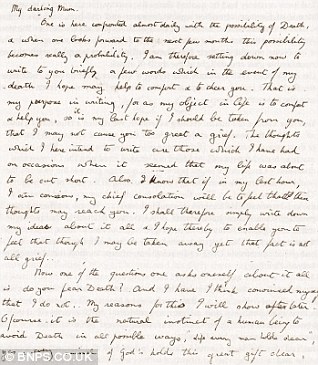 My darling Mum.
One is here confronted almost daily with the possibility of Death,
& when one looks forward to the next few months this possibility
becomes really a probability. I am therefore setting down now to
write to you briefly a few words which in the event of my
death I hope may help to comfort & to cheer you. That is
my purpose in writing, for as my object in life is to comfort
& help you, so it is my last hope if I should be taken from you,
that I may not cause you too great a grief. The thoughts
which I here intend to write are those which I have had
on occasions when it seemed that my life was about
to be cut short. Also, I know that if in my last hour,
I am conscious, my chief consolation will be to feel that these
thoughts may reach you. I shall therefore simply write down
my ideas about it all & I hope thereby to enable you to
feel that though I may be taken away yet that fact is not
all grief.
Now one of the questions one asks oneself about it all
is do you fear Death? And I have I think convinced myself
that I do not. My reasons for this I will show after later
Of course it is the natural instinct of a human being to
avoid Death in all possible ways, life every man holds dear",
of God's holds this great gift dear,
© BNPS.CO.UK